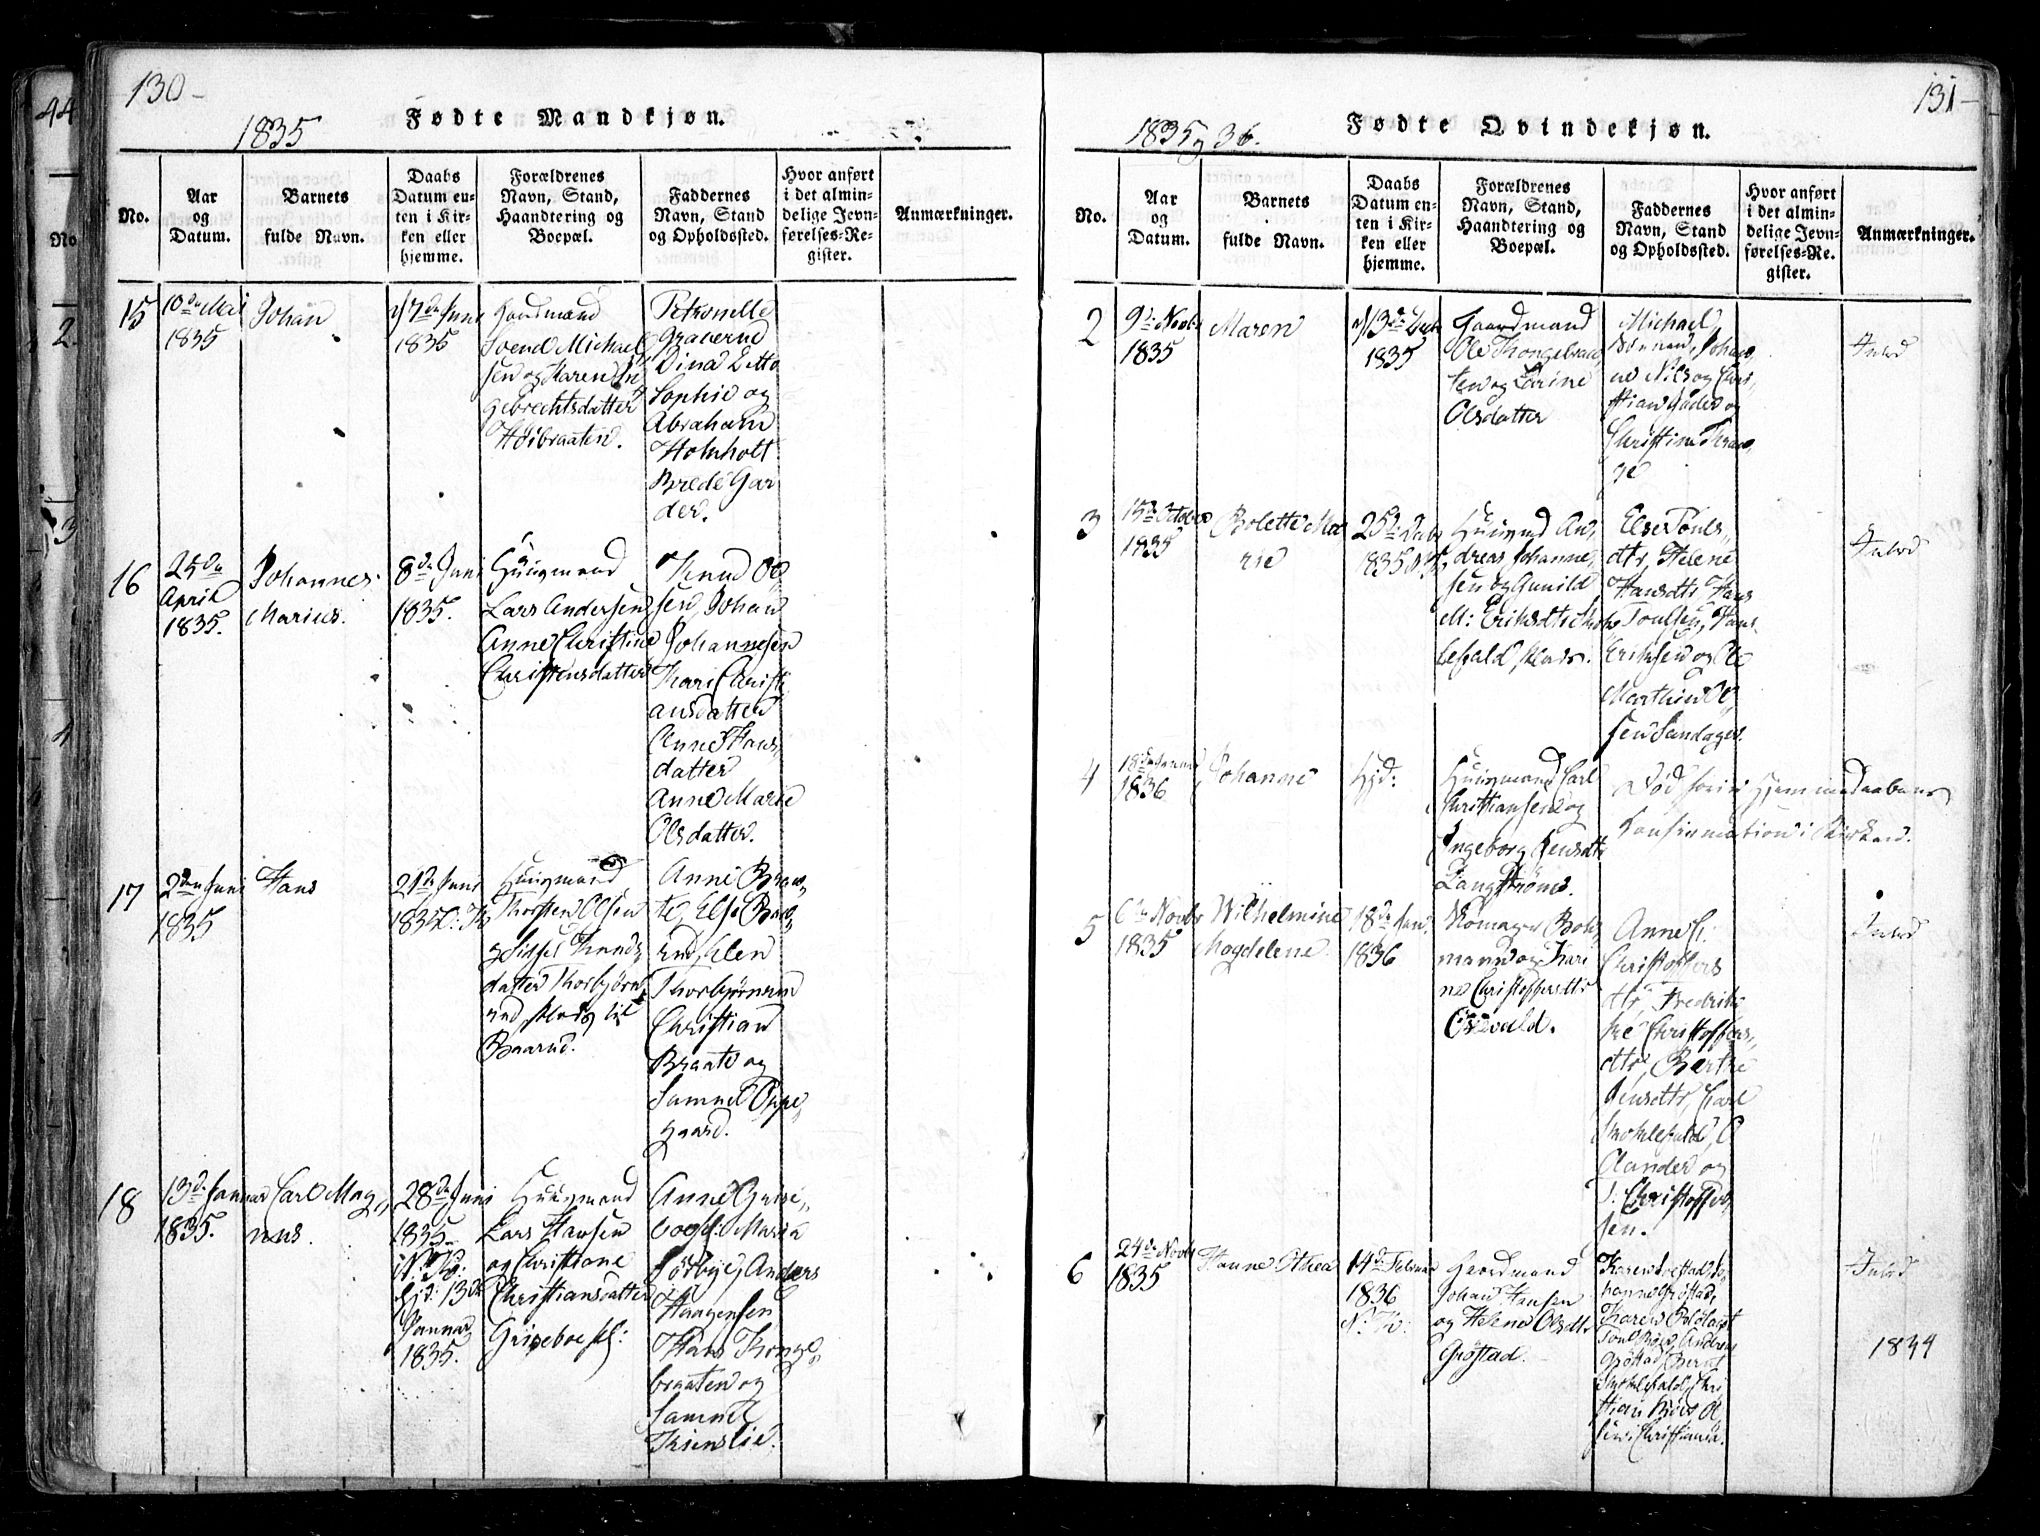 130-
1835
Fødte Mandkjøn.
No.
Aar
og
Datum.
Barnets
fulde Navn.
Daabs
Datum en-
ten i Kir-
ken eller
hjemme.
Forældrenes
Navn, Stand,
Haandtering og
Boepæl.
Faddernes
Navn, Stand
og Opholdssted.
Hvor anført
i det almin-
delige Jevn-
førelses-Re-
gister.
Anmærkninger.
15
10de Mai
1835
Johan
7de Juni
1835
Gaardmand
Svend Michael
sen og Karen In
gebrechtsdatter
Høibraaten.
Petronelle
Graverud
Dina Lette
Sophie og
Abraham
Holmholt
Brede Gar
der.
16
25de
April
1835.
Johannes
Marius.
8de Juni
1835.
Huusmand
Lars Andersen
Anne Christine
Christensdatter
Knud Ol
sen, Johan
Johannesen
Kari Christi
ansdatter
Anne Hans
datter
Anne Marie
Olsdatter.
17
2den Juni
1835
Hans
21de Juni
1835
Huusmand
Thorsten Olsen
og Sissel Knuds
datter Thorbjørn
rud, plads til
Baarud.
Anne Braa
te, Else Baa
rud, Elen
Thorbjørnrud
Christian
Braate og
Samuel Oppe
gaard.
18
13de Januar
1835.
Carl Mag
nus.
28de Juni
1835.
N: K:
hjd: 13de
Januar
1835.
Huusmand
Lars Hansen
og Christiane
Christiansdatter
Griseboe pl:
Anne Grise
boe pl: Maria
Sørbye, Anders
Haagensen
Hans Konge
braaten og
Samuel
Kienslie.
131-
1835 og 36.
Fødte Qvindekjøn.
No.
Aar
og
Datum.
Barnets
fulde Navn.
Daabs
Datum en-
ten i Kir-
ken eller
hjemme.
Forældrenes
Navn, Stand,
Haandtering og
Boepæl.
Faddernes
Navn, Stand
og Opholdssted.
Hvor anført
i det almin-
delige Jevn-
førelses-Re-
gister.
Anmærkninger.
2
9de Novbr
1835
Maren
13de Decbr
1835
Gaardmand
Ole Kongelbraa
ten og Karine
Olsdatter
Michael
Bønnen, Johan
ne Nils og Chri
stian Gades og
Christine Krau
ge
3
15de October
1835
Bolette Ma
rie
25de Decbr
1835
Huusmd An
dreas Johanne
sen og Gunild
M: Eriksdtr Skok
lefald plads.
Else Pouls
dtr, Helene
Hansdtr, Hans
Poulsen, Hans
Eriksen og Ole
Marthin Ol
sen Sandager.
4
18de Januar
1836
Johanne
hjd:
Huusmand Carl
Christiansen og
Ingeborg Jensdtr
Langstrøms.
Død før in hjemmedaabens
Konfirmation i Kirken.
5
6te Novbr
1835
Wilhelmine
Magdelene
18de Jan.
1836
Romager Boh
mann og Kari
ne Christophersdtr
Oswald.
Anne C:
Christophers
dtr, Fredrik
ke Christoffers
dtr, Berthe
Jensdtr, Carl
Skoklefald, O
Olander og
J: Christoffer
sen.
6
24de Novbr
1835
Hanne Othea
14de Februar
1836
N: K:
Gaardmand
Johan Hansen
og Helene Olsdtr
Grøstad.
hanne Grøstad,
Karen
Grøstad, Bernt
Skoklefald, Chri
stian Moes Ol
sen Christiania.
1844